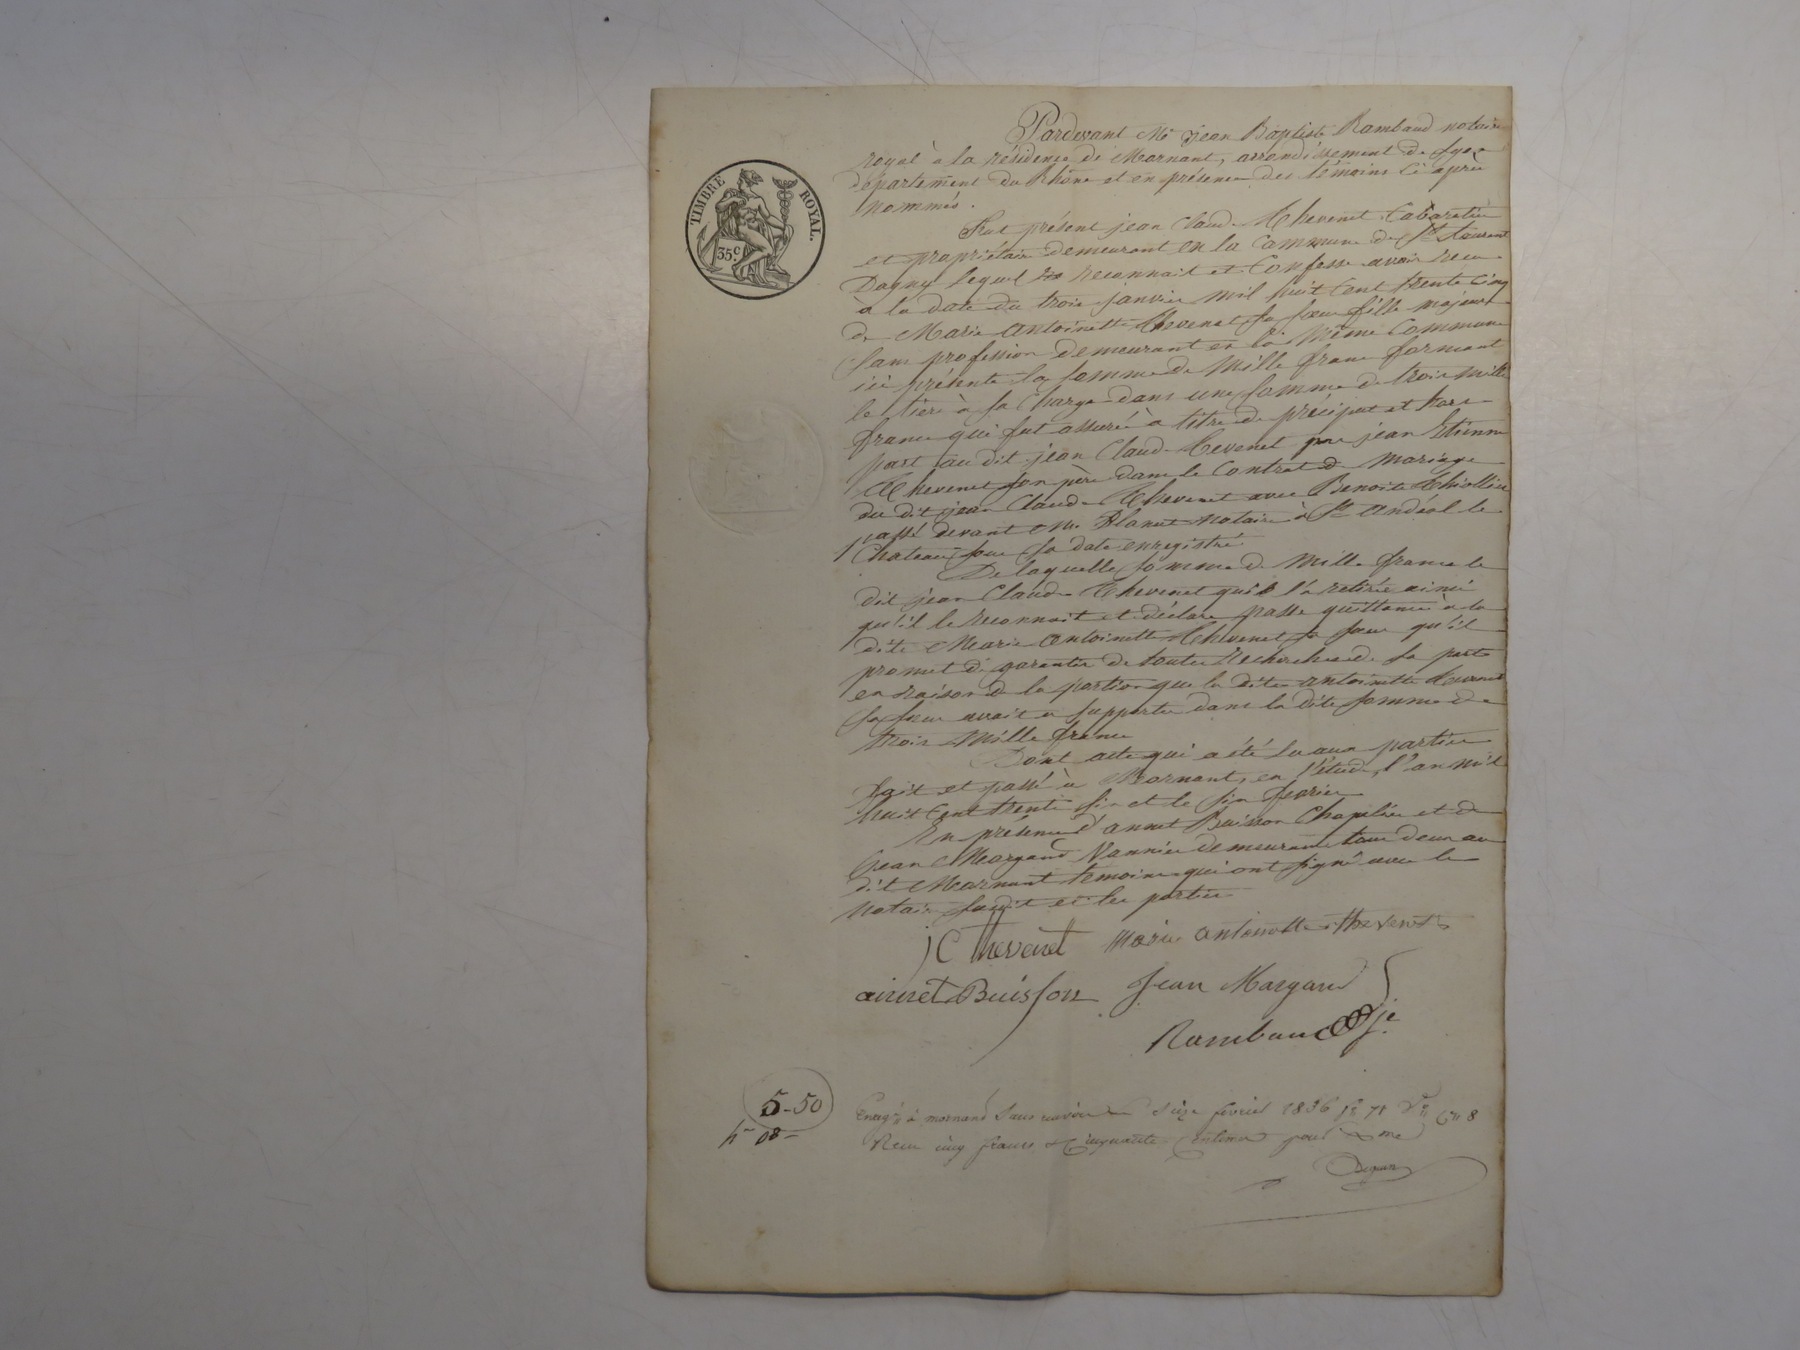 TIMBRE ROYAL.
35 c
Pardevant Me jean Baptiste Rambaud notaire
royal à la résidence de Mornant, arrondissement de Lyon
département du Rhône et en présence des témoins ci après
nommés.
Fut présent jean Claude Thevenet Cabaretier
et propriétaire demeurant en la Commune de St Laurent
Dagny lequel reconnait et Confesse avoir recu
à la date du trois janvier mil huit Cent trente Cinq
de Marie Antoinette Thevenet sa sœur fille majeure
sans profession demeurant en la même Commune
ici présente la somme de Mille francs formant
le tiers à sa Charge dans une somme de trois mille
francs qui fut assurée à titre de préciput et hors
part au dit jean Claude Thevenet par jean Etienne
Thevenet son père dans le Contrat de Mariage
du dit jean Claude Thevenet avec Benoite Thiollier
passé devant Me notaire à St Andéol le
Chateau sous sa date enregistré
De laquelle somme de Mille francs le
dit jean Claude Thevenet qui l'a retirée ainsi
qu'il le reconnait et déclare passe quittance à la
dite Marie Antoinette Thevenet sa sœur qu'il
promet de garantir de toutes recherches de sa part
en raison de la portion que la dite Antoinette Thevenet
sa sœur avait à supporter dans la dite somme de
trois Mille francs
Dont acte qui a été lu aux parties
fait et passé à Mornant, en l'étude, l'an mil
huit Cent trente six et le six fevrier
En présence d'annet Buisson Chapelier et de
Jean Margand Vannier demeurant tous deux au
dit Mornant temoins qui ont signé avec le
notaire susdit et les parties
j C thevenet Marie antoinette thevenet
annet Buisson Jean Margand
Rambaud
5-50
08
Enreg. à mornand Sans renvoi Seize février 1836 fo 71 Vo Cs 8
Recu cinq francs & Cinquante Centimes pour